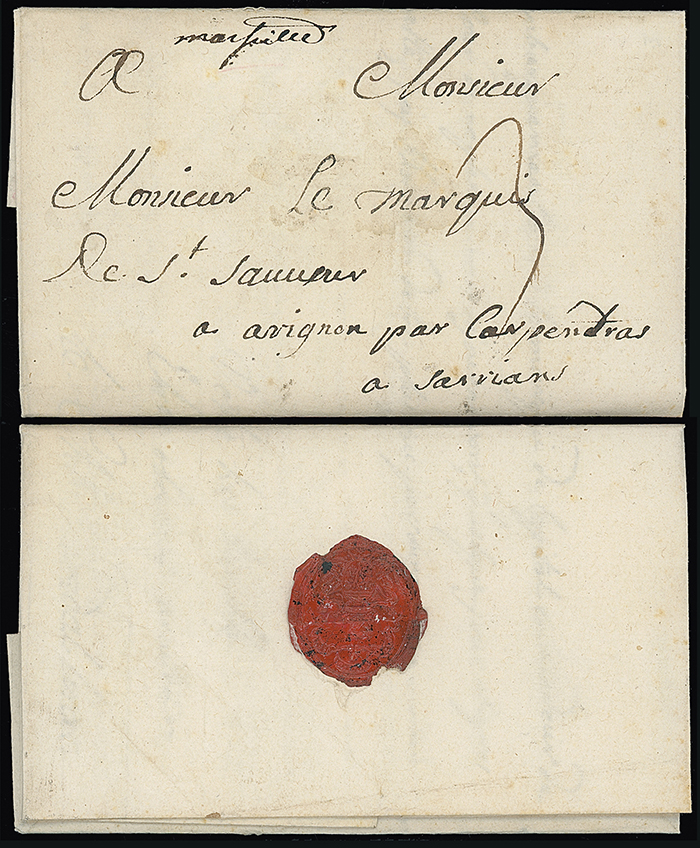 marseille
A Monsieur
Monsieur Le marquis
De St. Sauveur
a avignon par Carpendras
a sarrians